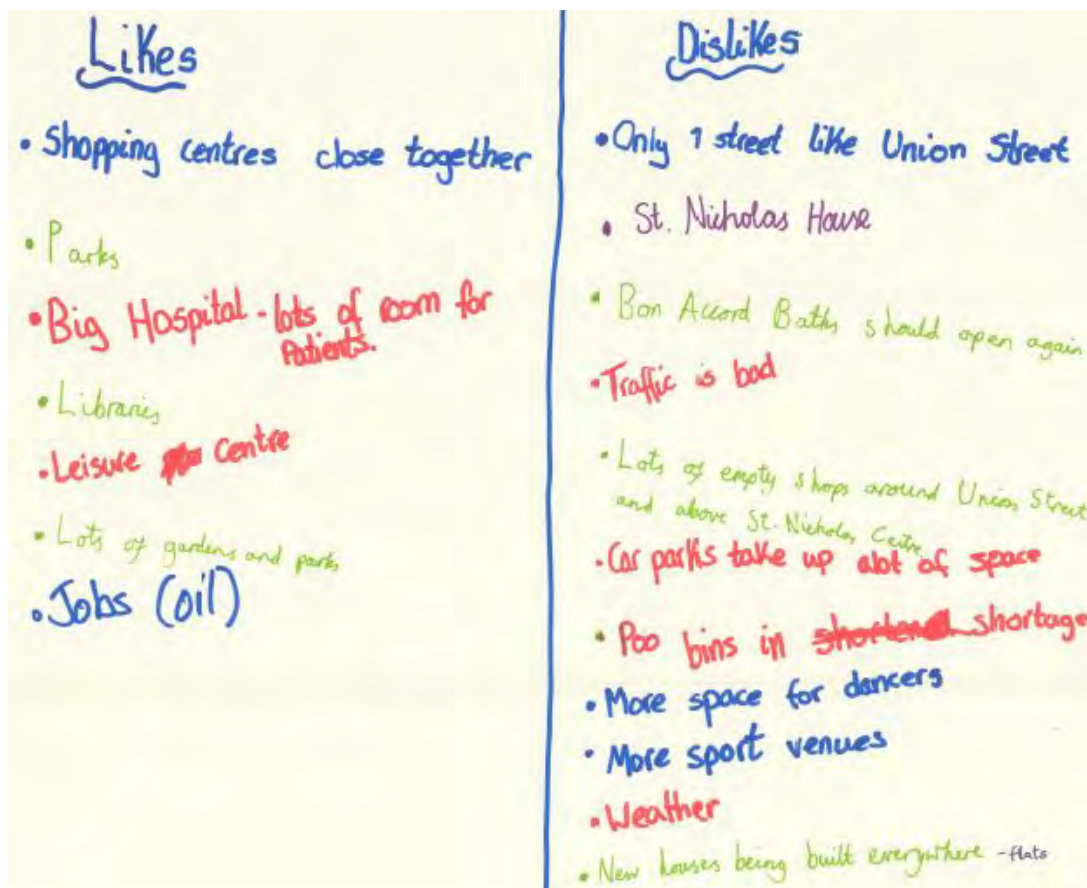 Likes
• Shopping centres close together
• Parks
• Big Hospital - lots of room for
patients.
• Libraries
• Leisure centre
• Lots of gardens and parks
• Jobs (oil)
Dislikes
• Only 1 street like Union Street
• St. Nicholas House
• Bon Accord Baths should open again
• Traffic is bad
• Lots of empty shops around Union Street
and above St. Nicholas Centre
• Car parks take up alot of space
• Poo bins in shortage
• More space for dancers
• More sport venues
• Weather
• New houses being built everywhere - flats